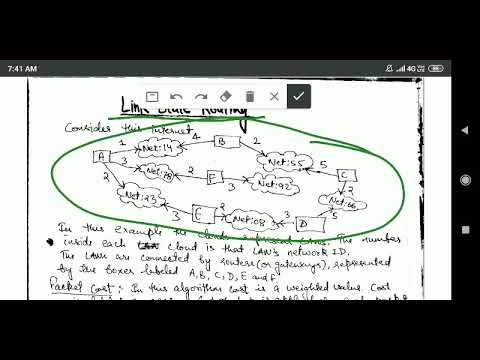 7:41 AM
4G
Link State Routing
Consider this internet
1
Net:14
4
B
2
Net:55
5
C
A
3
Net:78
2
F
3
Net:92
2
Net:66
2
Net:43
3
E
2
Net:08
3
D
5
In this example the clouds represent LANs. The number
inside each LAN cloud is that LAN's network ID.
The LANs are connected by routers (or gateways), represented
by the boxes labeled A, B, C, D, E and F.
Packet Cost: In this algorithm cost is a weighted value. Cost